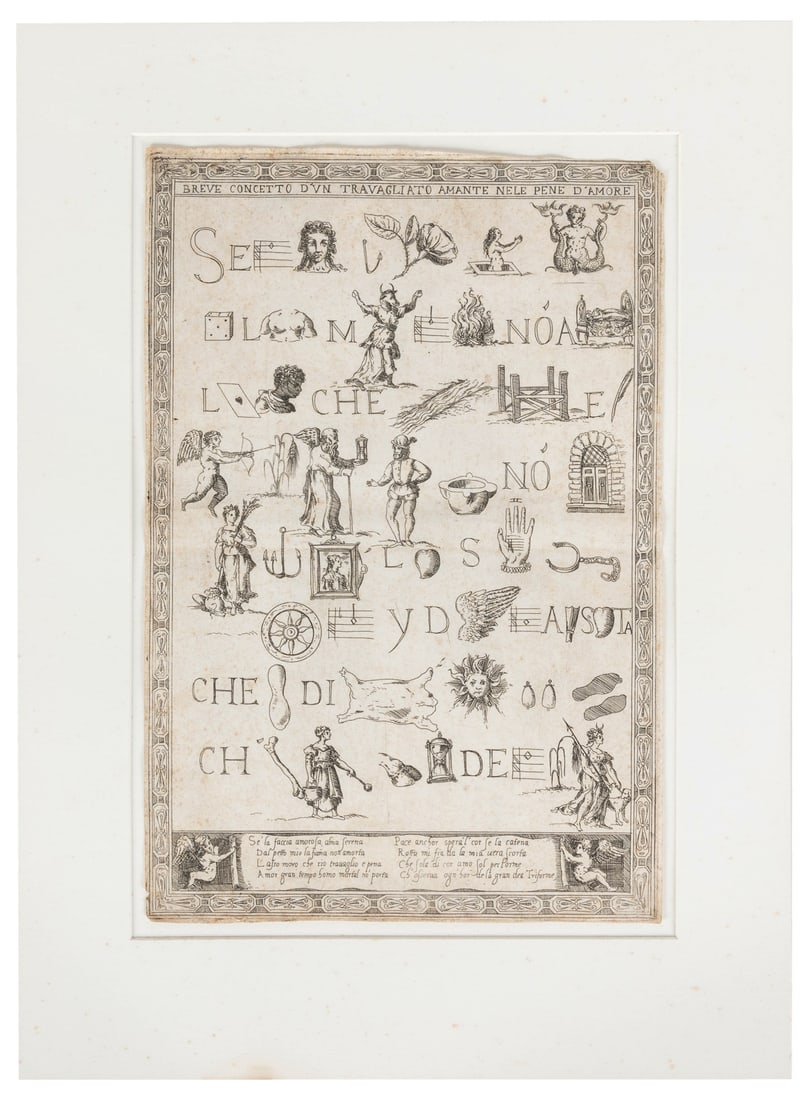 BREVE CONCETTO D'VN TRAVAGLIATO AMANTE NELE PENE D'AMORE
SE
L M NÓ A
L CHE E
NÓ
L S
Y D A S TA
CHE DI
CH DE
Se la faccia amorosa, alma serena
Dal petto mio la fiama non amorta
Lasso moro che tro travaglio e pena
Amor gran tempo homo mortal nō porta
Pace anchor spera'l cor se la catena
Rotto mi fia da la mia vera scorta
Che sola di cor amo sol per sorme
Ch osserua ogn hor de la gran dea Triforme